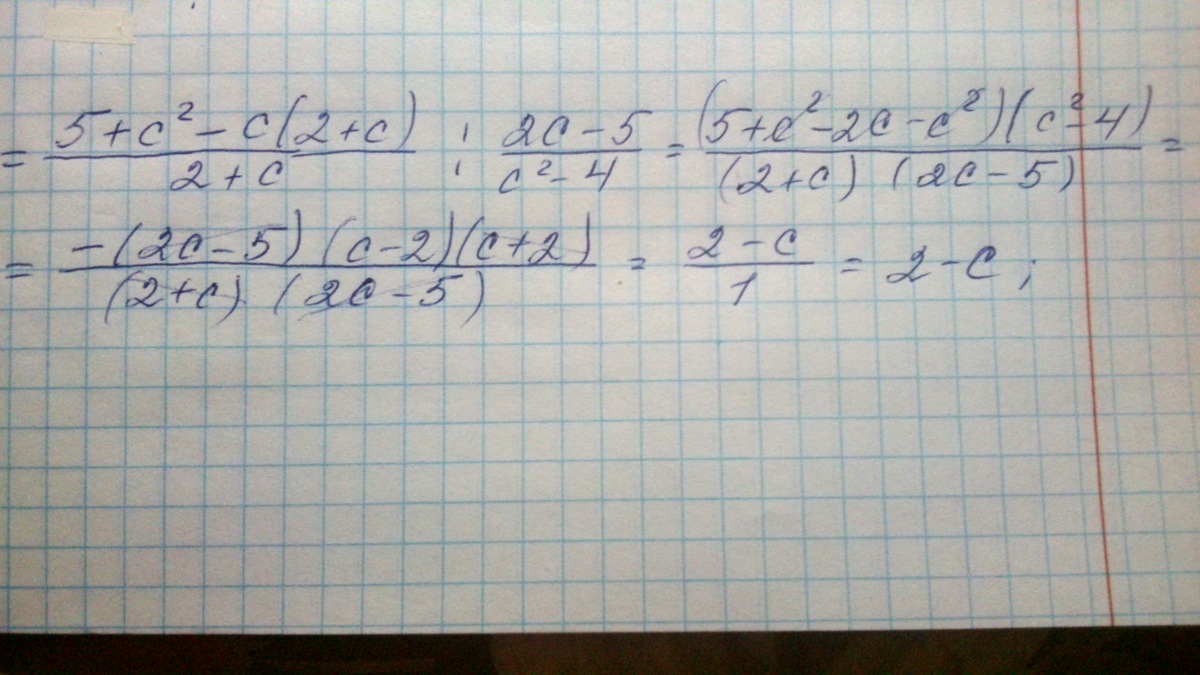 = (5+c²-c(2+c))/(2+c) : (2c-5)/(c²-4) = ((5+c²-2c-c²)(c²-4))/((2+c)(2c-5)) =
= (-(2c-5)(c-2)(c+2))/((2+c)(2c-5)) = (2-c)/1 = 2-c;